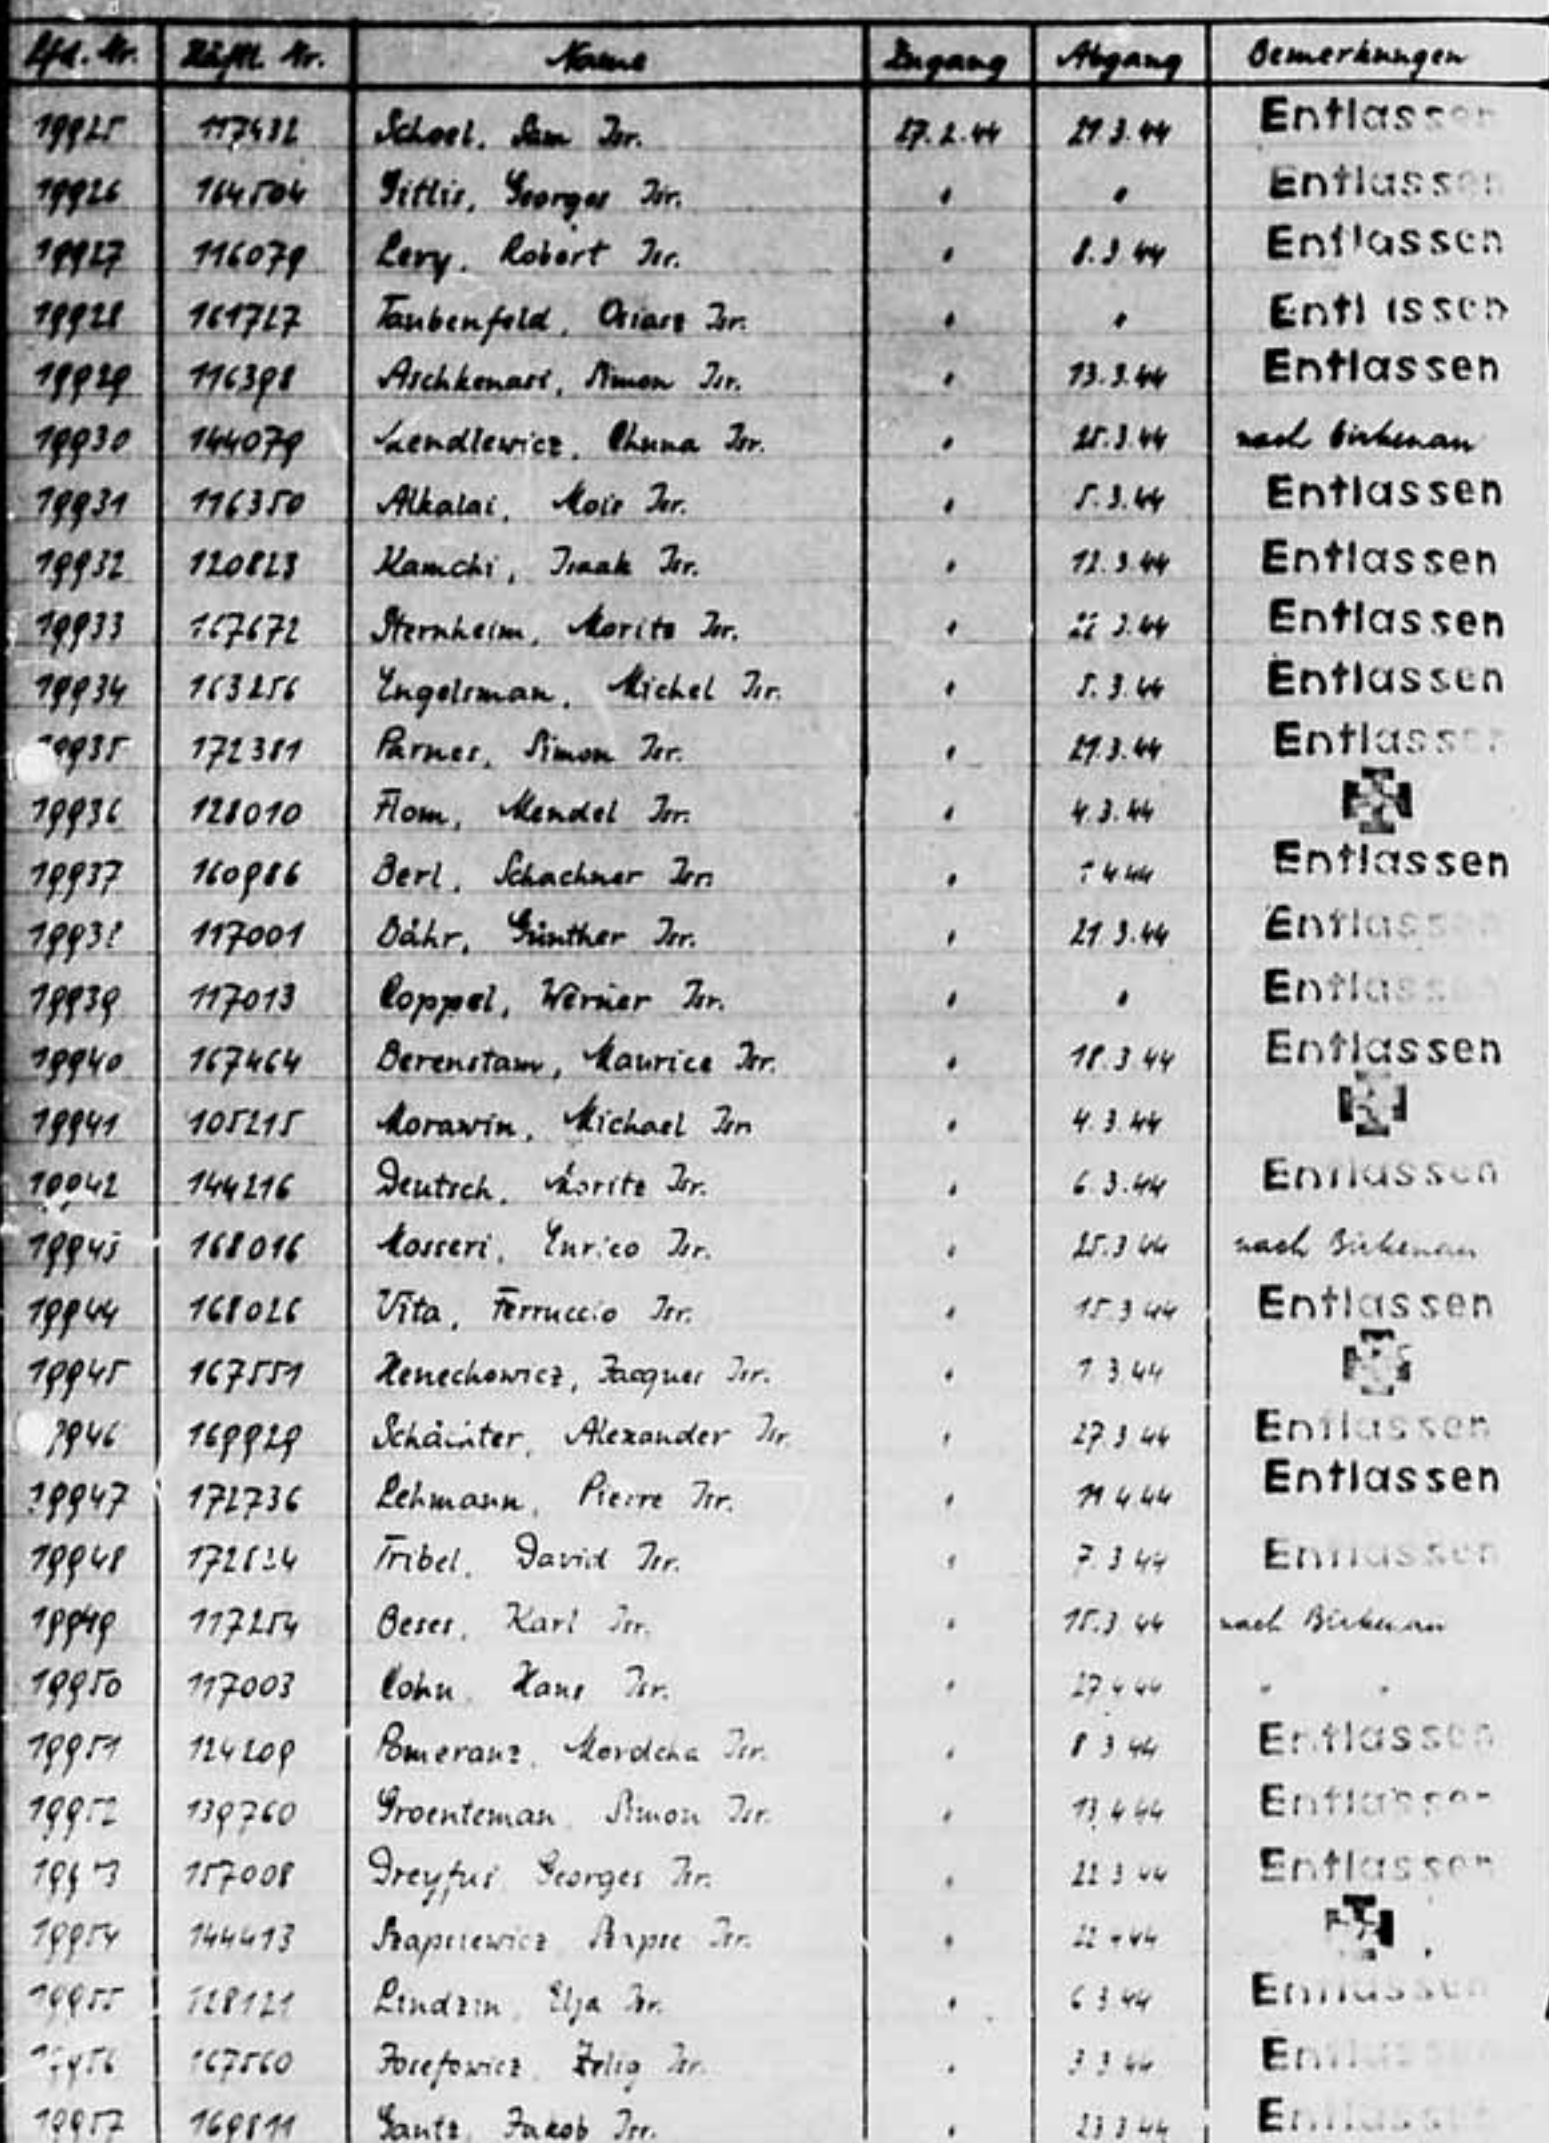 Lfd. Nr. Häftl. Nr. Name Zugang Abgang Bemerkungen
19925 117432 Schoel, Sam Isr. 27.2.44 21.3.44 Entlassen
19926 164504 Gitlis, Georges Isr. " " Entlassen
19927 116079 Levy, Robert Isr. " 8.3.44 Entlassen
19928 161727 Taubenfeld, Isr. " " Entlassen
19929 116398 Aschkenasi, Simon Isr. " 13.3.44 Entlassen
19930 144079 Isr. " 25.3.44 nach Birkenau
19931 116350 Alkalai, Mois Isr. " 5.3.44 Entlassen
19932 120823 Kamchi, Isaak Isr. " 12.3.44 Entlassen
19933 167672 Sternheim, Moritz Isr. " 3.44 Entlassen
19934 163256 Engelsman, Michel Isr. " 5.3.44 Entlassen
172381 Parnes, Simon Isr. " 21.3.44 Entlassen
19936 128010 Flom, Mendel Isr. " 4.3.44
19937 160986 Berl, Schachner Isr. " Entlassen
19938 117001 Bähr, Günther Isr. " 21.3.44 Entlassen
19939 117013 Coppel, Werner Isr. " " Entlassen
19940 167464 Berenstam, Maurice Isr. " 18.3.44 Entlassen
19941 105215 Morawin, Michael Isr. " 4.3.44
19942 144216 Deutsch, Moritz Isr. " 6.3.44 Entlassen
19943 168016 Mosseri, Enrico Isr. " 25.3.44 nach Birkenau
19944 168026 Vita, Ferruccio Isr. " 15.3.44 Entlassen
19945 167551 Henechowicz, Jacques Isr. " 1.3.44
169929 Alexander Isr. " 27.3.44 Entlassen
19947 172736 Lehmann, Pierre Isr. " 11.4.44 Entlassen
19948 Fribel, David Isr. " 7.3.44 Entlassen
19949 117254 Beses, Karl Isr. " 15.3.44 nach Birkenau
19950 117003 Cohn, Hans Isr. " 27.4.44 " "
19951 124209 Pomeranz, Mordcha Isr. " 8.3.44 Entlassen
19952 139760 Groenteman, Simon Isr. " 13.4.44 Entlassen
157008 Dreyfus, Georges Isr. " 22.3.44 Entlassen
19954 144413 Isr. "
19955 128121 Elja Isr. " 6.3.44 Entlassen
167560 Josefowicz, Zelig Isr. " 3.3.44 Entlassen
19957 169811 Gantz, Jakob Isr. " 23.3.44 Entlassen